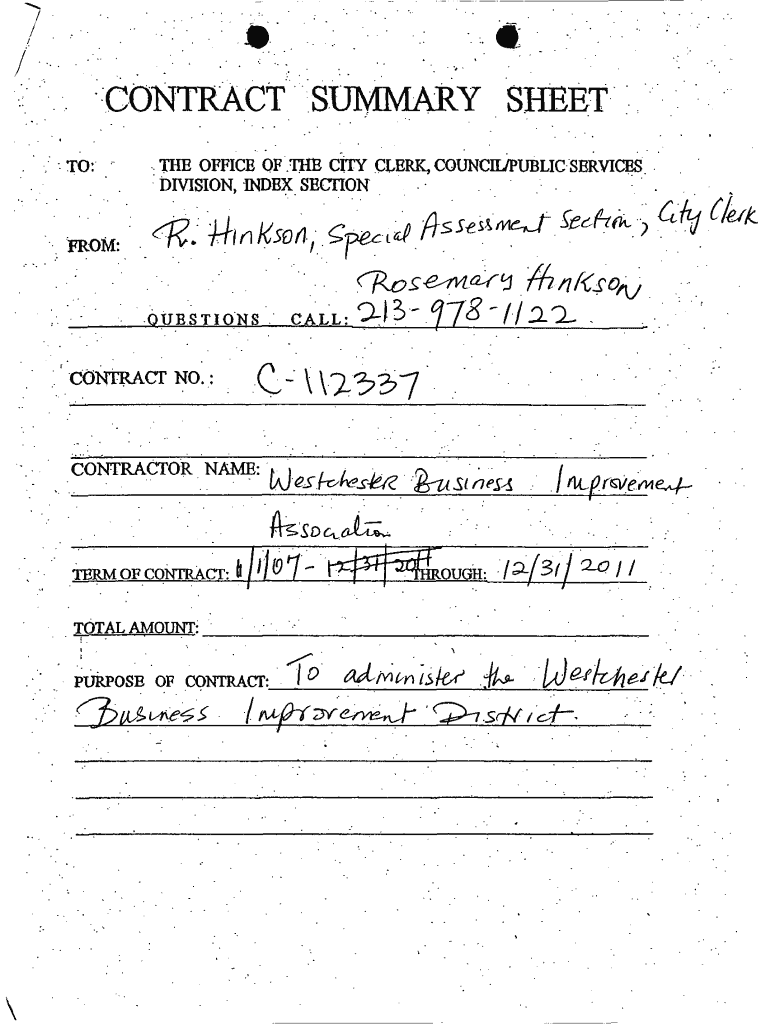 CONTRACT SUMMARY SHEET
TO: THE OFFICE OF THE CITY CLERK, COUNCIL/PUBLIC SERVICES
DIVISION, INDEX SECTION
FROM: R. Hinkson, Special Assessment Section, City Clerk
Rosemary Hinkson
QUESTIONS CALL: 213-978-1122
CONTRACT NO.: C-112337
CONTRACTOR NAME: Westchester Business Improvement
Association
TERM OF CONTRACT: 1/1/07 - 12/31/2011 THROUGH: 12/31/2011
TOTAL AMOUNT:
PURPOSE OF CONTRACT: To administer the Westchester
Business Improvement District.